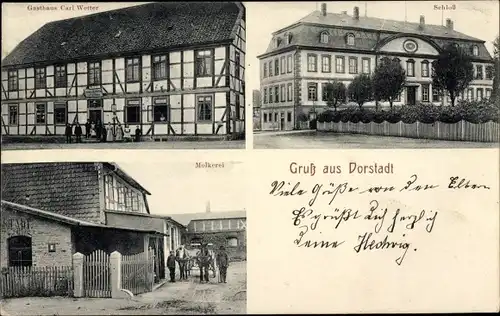 Gasthaus Carl Wetter
Schloß
Molkerei
Gruß aus Dorstadt
Viele Grüße von den Eltern
Es grüßt Dich herzlich
deine Hedwig.